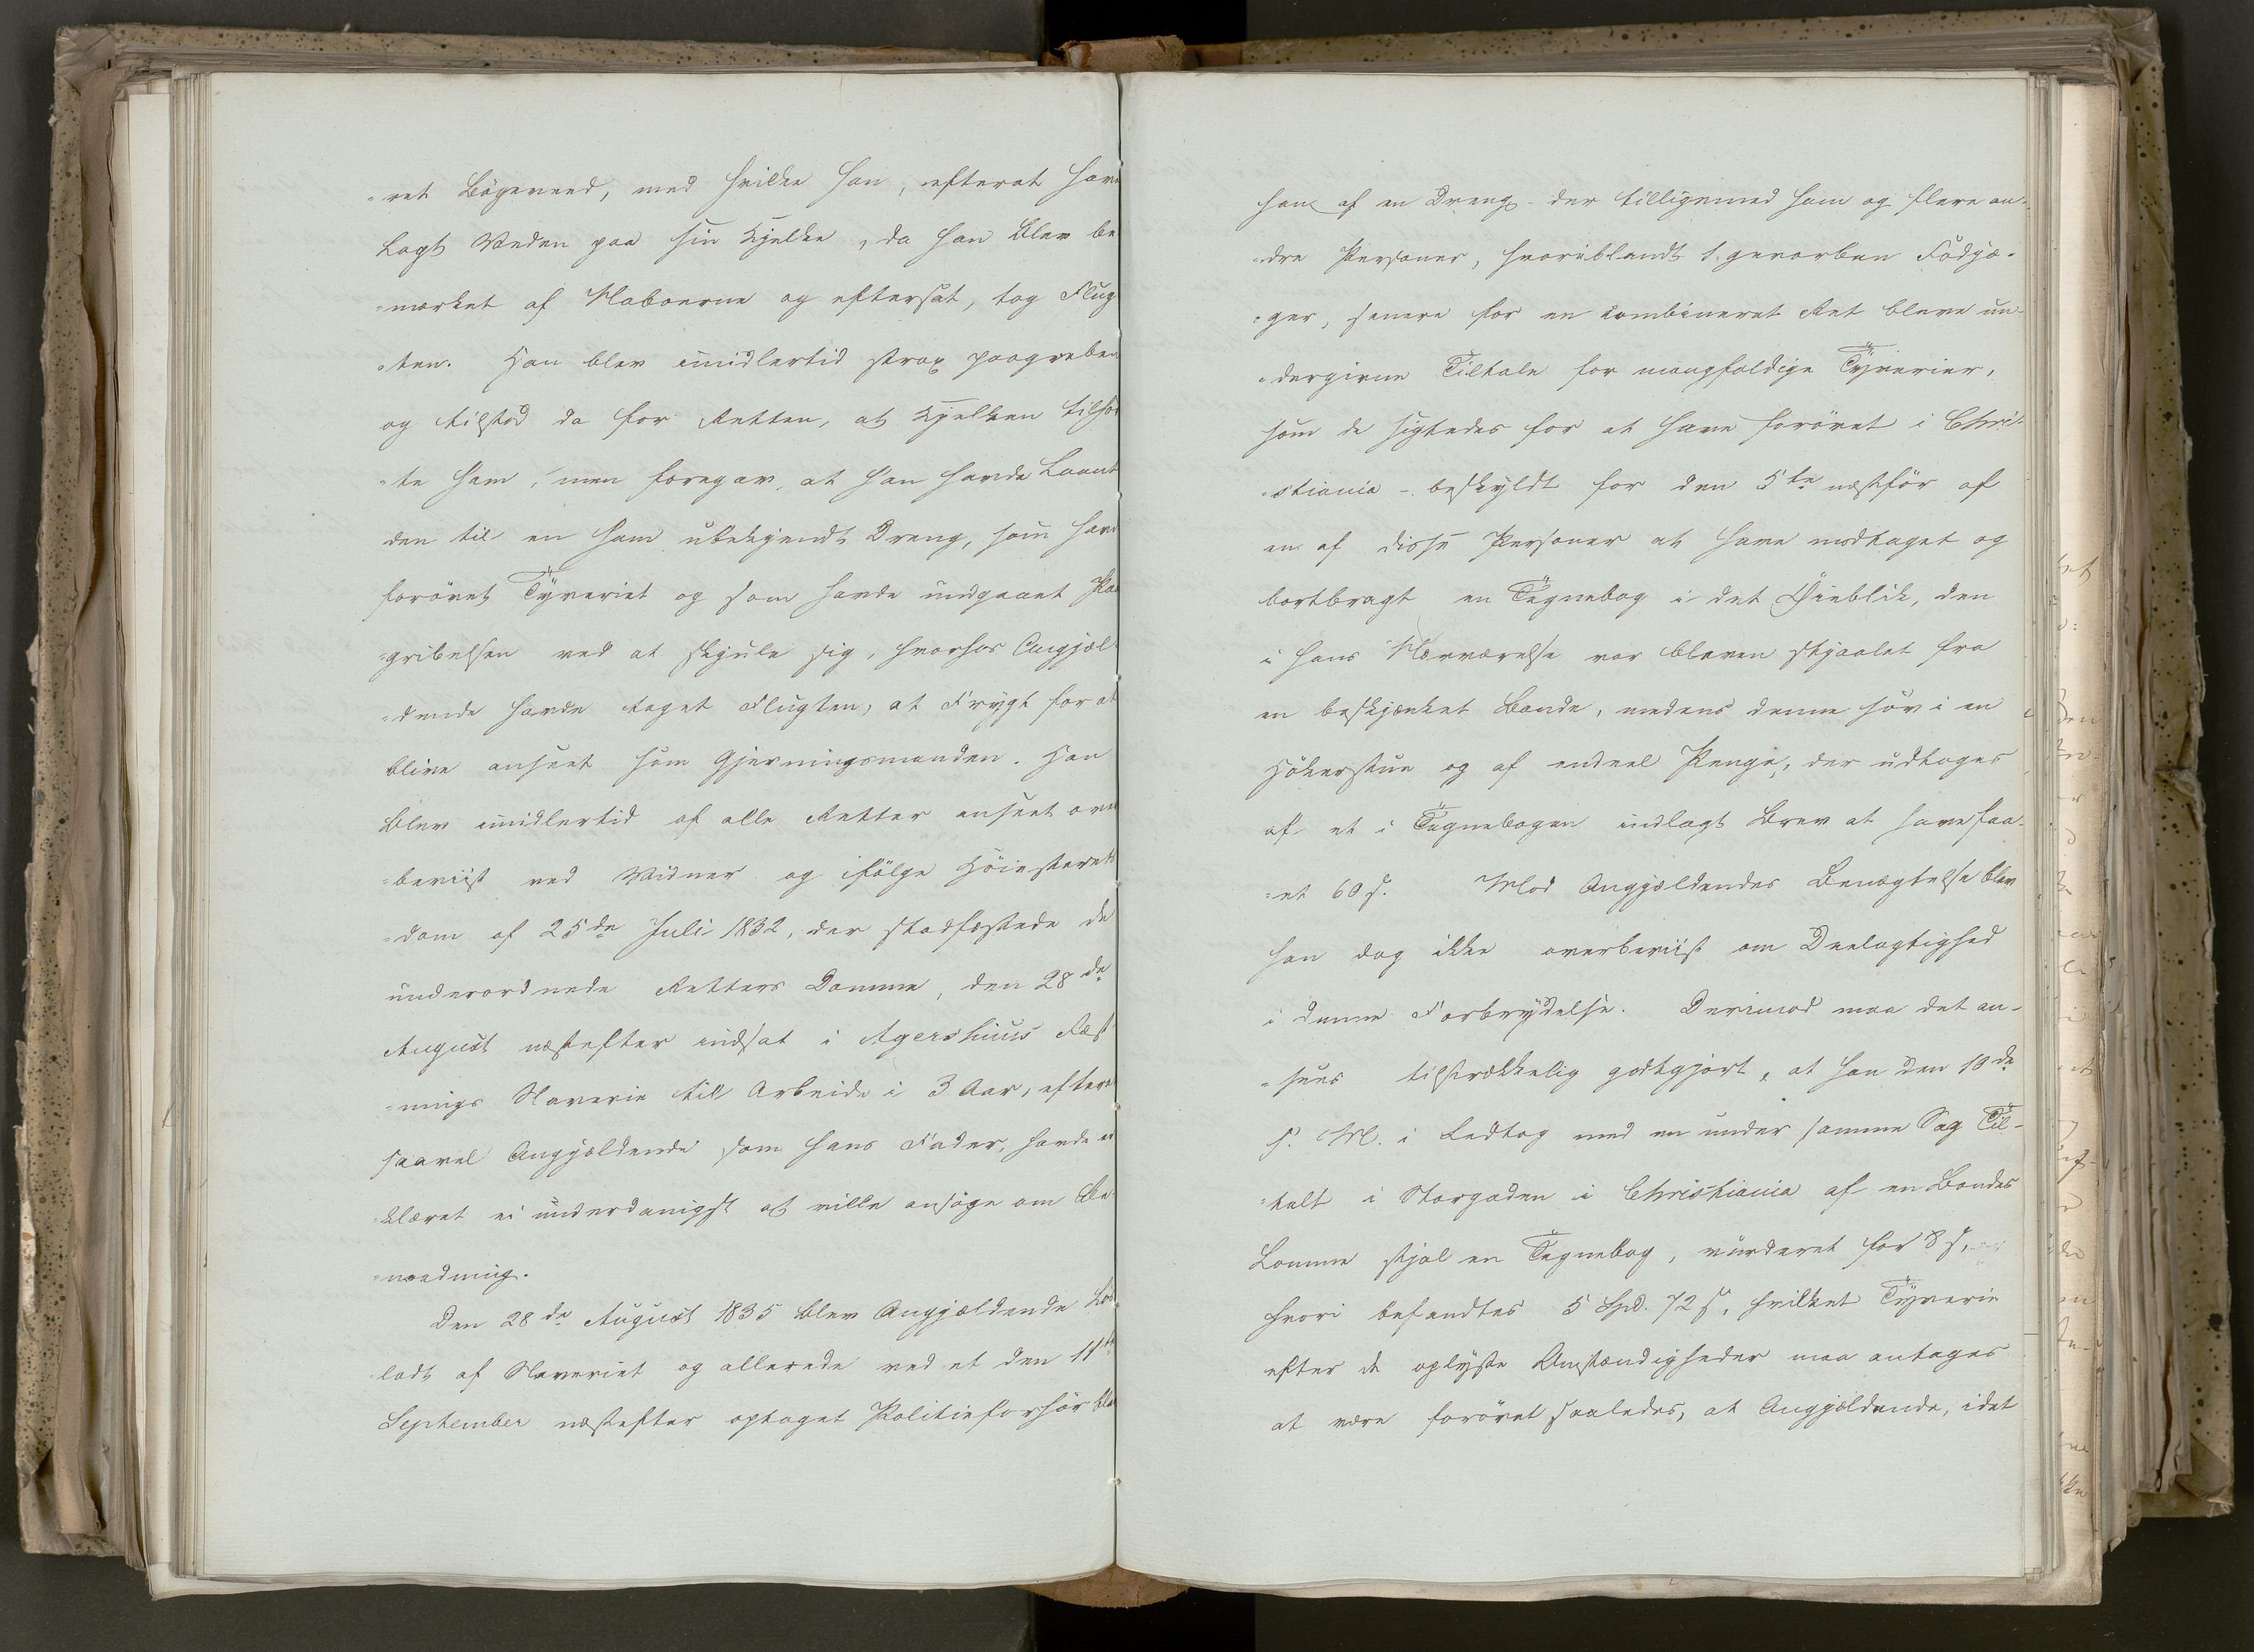 =ret Bøgeveed, med hvilke han, efterat have
Lagt Veden paa sin Kjelke, da han blev be
=mærket af Naboerne og eftersat, tog Flug
=ten. Han blev imidlertid strax paagreben
og tilstod da for Retten, at Kjelken tilhør
=te ham, men foregav at han havde Laant
den til en ham ubekjendt Dreng, som havde
forøvet Tyveriet og som havde undgaaet Paa
=gribelsen ved at skjule sig, hvorhos Angjæl
=dende havde taget Flugten, af Frygt for at
blive anseet som Gjerningsmanden. Han
blev imidlertid af alle Retter anseet over
=beviist ved Vidner og ifølge Høiesterets
=dom af 25de Juli 1832, der stadfæstede de
underordnede Retters Domme, den 28de
August næstefter indsat i Agershuus Fæst
=nings Slaverie till Arbeide i 3 Aar, efterat
saavel Angjældende som hans Fader, havde er
=klæret ei underdanigst at ville ansøge om Be
=naadning.
Den 28de August 1835 blev Angjældende Løs
ladt af Slaveriet og allerede ved et den 11te
September næstefter optaget Politieforhør blev
han af en Dreng - der tilligemed ham og flere an=
=dre Personer, hvoriblandt 1. geworben Fodjæ=
=ger, senere for en combineret Ret bleve un=
=dergivne Tiltale for mangfoldige Tyverier,
som de sigtedes for at have forøvet i Chri=
=stiania - beskyldt for den 5te næstfør af
en af disse Personer at have modtaget og
bortbragt en Tegnebog i det Øieblik, den
i hans Nærværelse var bleven stjaalet fra
en beskjænket Bonde, medens denne sov i en
Høkerstue og af endeel Penge, der udtoges
af et i Tegnebogen indlagt Brev at have faa=
=et 60 s. Mod Angjældendes Benægtelse blev
han dog ikke overbeviist om Deelagtighed
i denne Forbrydelse. Derimod maa det an=
=sees tilstrækkelig godtgjort, at han den 10de
s. M. i Ledtog med en under samme Sag Til=
=talt i Storgaden i Christiania af en Bondes
Lomme stjal en Tegnebog, vurderet for 8 s,
hvori befandtes 5 Spd. 72 s, hvilket Tyverie
efter de oplyste Omstændigheder maa antages
at være forøvet saaledes, at Angjældende, idet